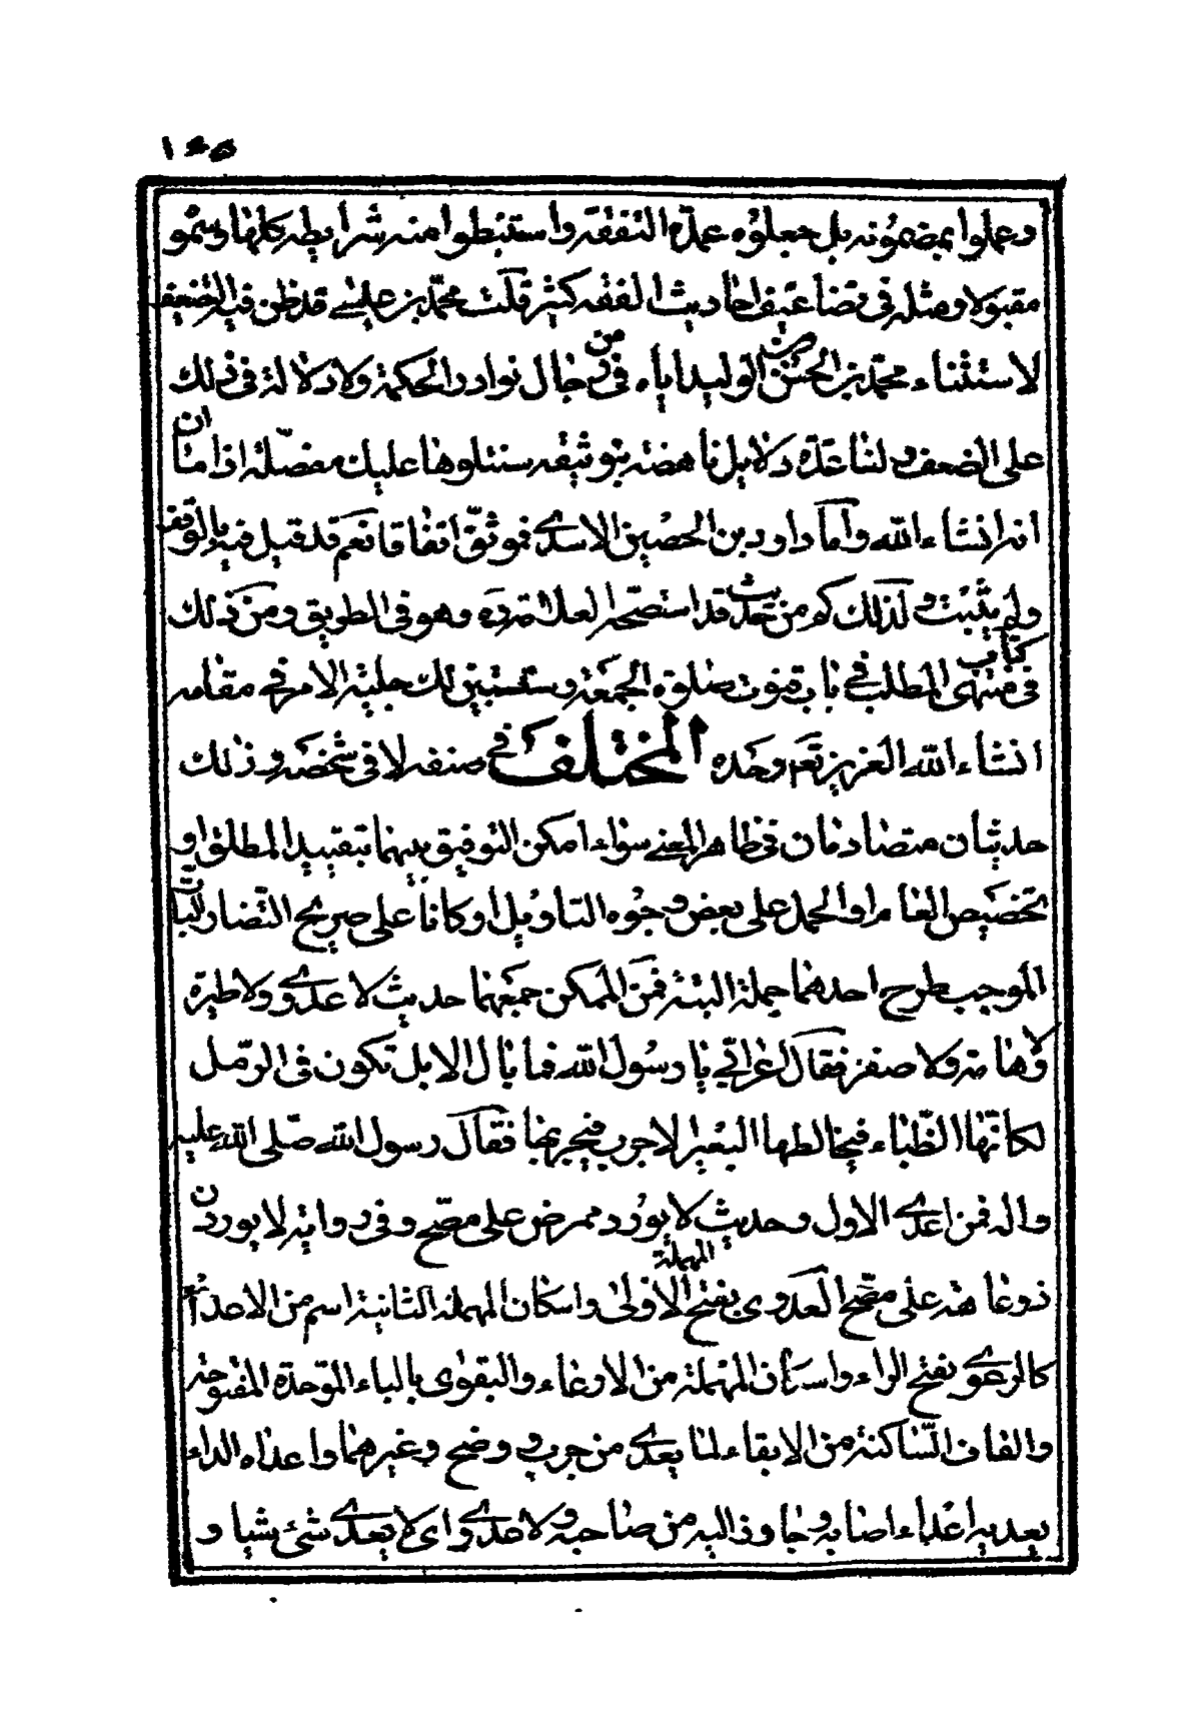 ١٦٥
وعملوا بمضمونه بل جعلوه عمدة التفقه واستنبطوا منه شرايطه كلها وسمو
مقبولا ومثله في تضاعيف احاديث الفقه كثير قلت محمد بن عيسى قد ظن فيه الضعيف
لاستثناء محمد بن الحسن الوليد اياه في من رجال نوادر الحكمة ولا دلالة في ذلك
على الضعف ولنا عدة دلايل ناهضة بتوثيقه سنتلوها عليك مفصلة اذا ما ان
انه انشاء الله واما داود بن الحصين الاسدي فموثق اتفاقا نعم قد قيل فيه بالوقف
ولم يثبت ولذلك كم من حديث قد استصحه العلامة ره وهو في الطريق ومن ذلك
في كتاب منتهى المطلب في باب قنوت صلوة الجمعة وستستبين لك جلية الامر في مقامه
انشاء الله العزيز تعم وحده المختلف في صنفه لا في شخصه وذلك
حديثان متصادمان في ظاهر المعنى سواء امكن التوفيق بينهما بتقييد المطلق او
تخصيص العام او الحمل على بعض وجوه التاويل او كانا على صريح التضاد والتباين
الموجب طرح احدهما جملة البتة فمن الممكن جمعهما حديث لا عدوى ولا طيرة
ولا هامة ولا صفر فقال اعرابي يا رسول الله فما بال الابل تكون في الرمل
لكانها الظباء فيخالطها البعير الاجرب فيجربها فقال رسول الله صلى الله عليه
واله فمن اعدى الاول وحديث لا يورد ممرض على مصح وفي رواية لا يوردن
ذو عاهة على مصح العدوى بفتح المهملة الاولى واسكان المهملة الثانية اسم من الاعداء
كالرعوى بفتح الراء واسكان المهملة من الارعاء والبقوى بالباء الموحدة المفتوحة
والقاف الساكنة من الابقاء لما يعدى من جرب ووضح وغيرهما واعداه الداء
يعديه اعداء اصابه وجاوز اليه من صاحبه ولا عدوى اي لا يعدى شئ شيئا و